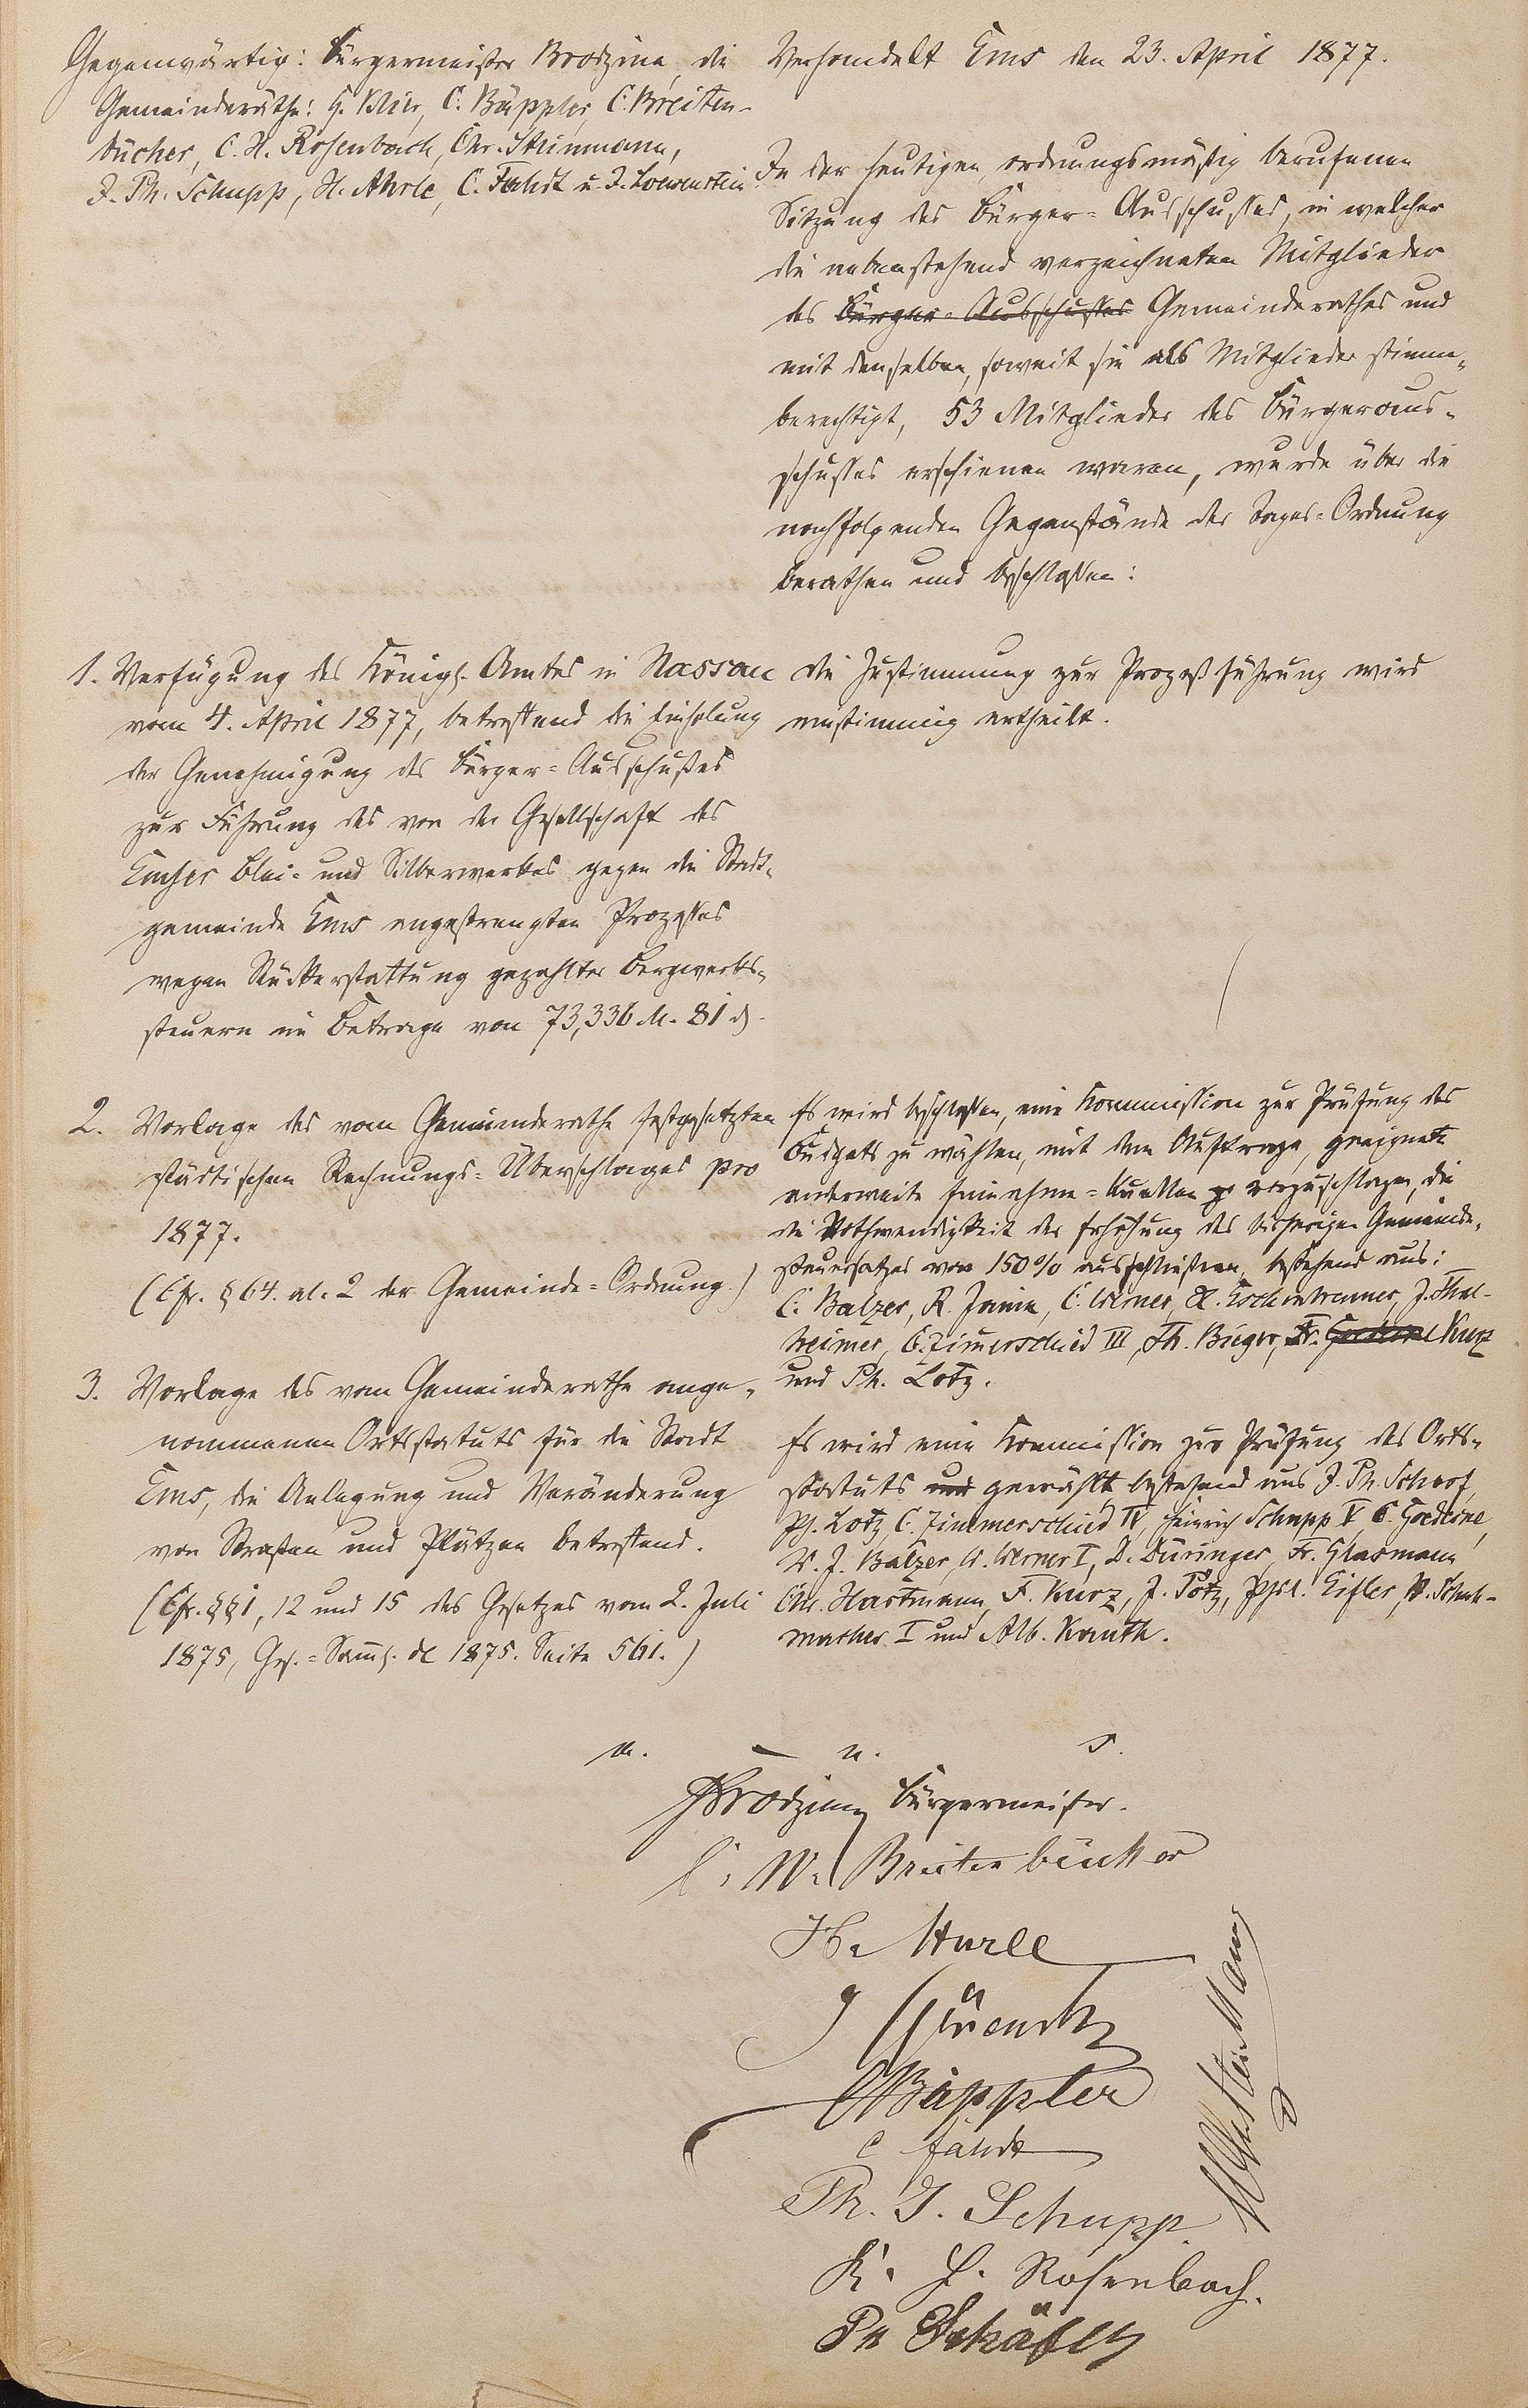 Gegenwärtig: Bürgermeister Brodzina, die
Gemeinderäthe: C. Bäppler, C. Breiten-
bücher, C. H. Rosenbach, Chr. Steinmann,
J. Ph. Schupp, H. Ahrle, C. Fahdt u. J. Loewenstein
Verhandelt Ems den 23. April 1877.
In der heutigen, ordnungsmäßig berufenen
Sitzung des Bürger-Ausschusses, in welcher
die nebenstehend verzeichneten Mitglieder
des Bürger-Ausschusses Gemeinderathes und
mit denselben, soweit sie als Mitglieder stimm-
berechtigt, 53 Mitglieder des Bürgeraus-
schusses erschienen waren, wurde über die
nachfolgenden Gegenstände der Tages-Ordnung
berathen und beschlossen:
1. Verfügung des Königl. Amtes in Nassau
vom 4. April 1877, betreffend die Einholung
der Genehmigung des Bürger-Ausschußes
zur Führung des von der Gesellschaft des
Emser Blei- und Silberwerkes gegen die Stadt-
gemeinde Ems angestrengten Prozesses
wegen Rückerstattung gezahlter Bergwerks-
steuern im Betrage von 73,336 M. 81 d.
die Zustimmung zur Prozeßführung wird
einstimmig ertheilt.
2. Vorlage des vom Gemeinderathe festgesetzten
städtischen Rechnungs-Überschlages pro
1877.
(Cfr. § 64. al. 2 der Gemeinde-Ordnung.)
Es wird beschlossen, eine Kommission zur Prüfung des
Budgets zu wählen, mit dem Auftrage, geeignete
anderweite Einnahme-Quellen vorzuschlagen, die
die Nothwendigkeit der Erhöhung des bisherigen Gemeinde-
steuersatzes von 150 % ausschließen, bestehend aus:
C. Balzer, R. Jamin, C. Werner, J. Thal-
heimer, C. Zimerschied III, Th. Bieger, Fr. Kurz
und Ph. Lotz.
3. Vorlage des vom Gemeinderathe ange-
nommenen Ortsstatuts für die Stadt
Ems, die Anlegung und Veränderung
von Straßen und Plätzen betreffend.
(Cfr. §§ 1, 12 und 15 des Gesetzes vom 2. Juli
1875, Ges.-Samml. de 1875. Seite 561.)
Es wird eine Kommission zur Prüfung des Orts-
statuts und gewählt bestehend aus J. Ph. Scharf,
Ph. Lotz, C. Zimmerschied IV, Heinrich Schupp V, C. Goedecke,
W. J. Balzer, W. Werner I, D. Düringer, Fr. Glasmann
Chr. Hartmann, F. Kurz, J. Pötz, Phil. Eisler, P. Schuh-
macher I und Alb. Kauth.
a. u. s.
Brodzina Bürgermeister.
C. W. Breitenbücher
H. Ahrle
C Bäppler
C Fahdt
Ph. J. Schupp.
K. H. Rosenbach.
Ph Schäfer